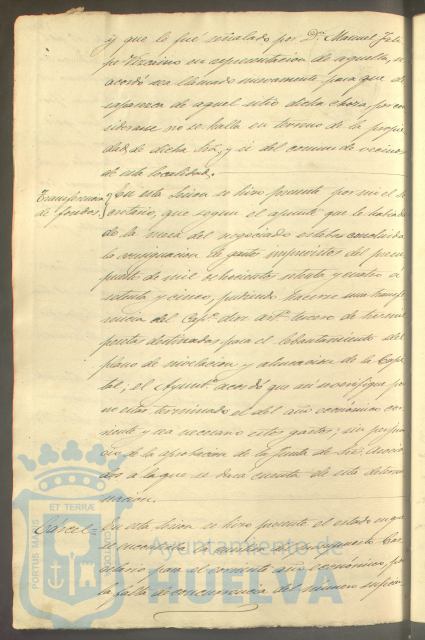 y que le fué señalado por Dn. Manuel Feli
pe Vizcaino en representacion de aquella, se
acordó sea llamado nuevamente para que de
saparezca de aquel sitio dicha choza, por con
siderarse no se halla en terreno de la propie
dad de dicha Sra. y si del comun de vecinos
de esta localidad.
Transferencia
de fondos
En esta sesion se hizo presente por mi el Se
cretario, que segun el apunte que le habia
de la mesa del negociado estaba concluida
la consignacion de gastos imprevistos del presu
puesto de mil ochocientos setenta y cuatro a
setenta y cinco, pudiendo hacerse una transfe
rencia del Capo. dos arto. tercero de
pesetas destinadas para el lebantamiento del
plano de nivelacion y alineacion de la Capi
tal; el Ayunto. acordó que asi se verifique por
no estar terminado el del año económico cor
riente y sea necesario estos gastos; sin perjui
cio de la aprobacion de la Junta de Sres. asocia
dos a la que se dará cuenta de esta determi
nacion.
Cárcel=
En esta sesion se hizo presente el estado en que
se encontraba la
celario para el corriente año económico por
la falta de concurrencia del número suficien
ET TERRÆ
PORTUS MARIS
CUSTODIO
Ayuntamiento de
HUELVA